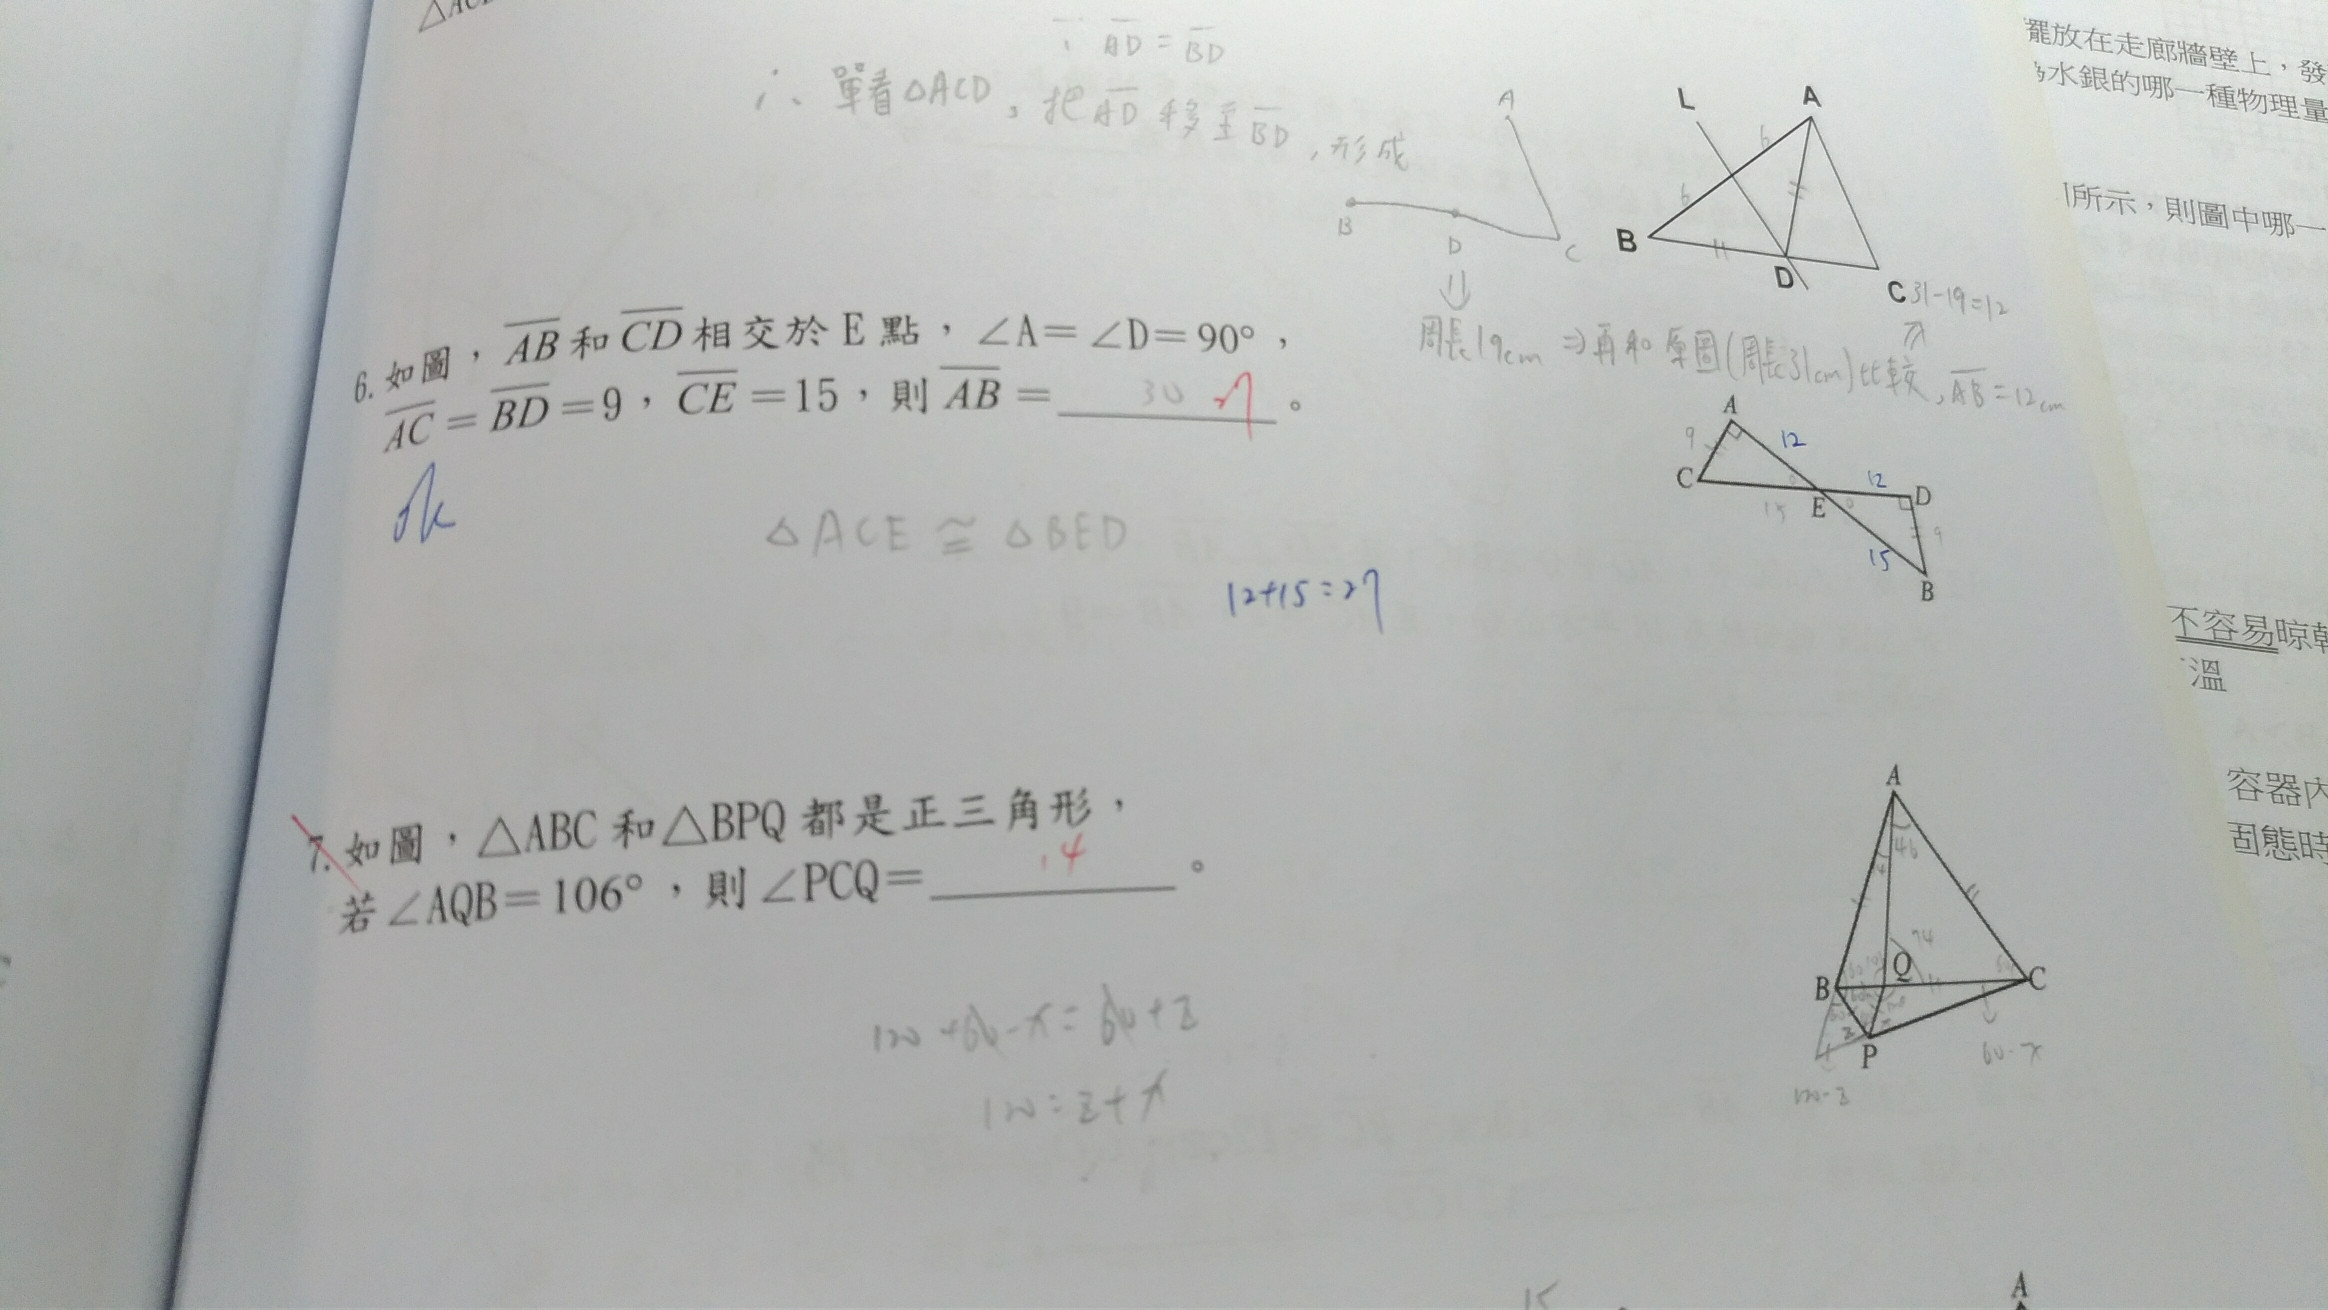 ∵ AD = BD
∴ 單看△ACD，把AD移至BD，形成
A
B
D
C
L
A
6
6
B
D
C
31-19=12
周長19cm ⇒再和原圖(周長31cm)比較，AB=12cm
6. 如圖，AB和CD相交於E點，∠A=∠D=90°，
AC=BD=9，CE=15，則AB= 30 。
ok
△ACE ≅ △BED
12+15=27
A
9
12
C
12
D
15
E
9
15
B
7. 如圖，△ABC和△BPQ都是正三角形，
若∠AQB=106°，則∠PCQ= 14 。
120+60-x=60+z
120=z+x
A
46
74
B
Q
C
P
60-x
120-z
擺放在走廊牆壁上，發
水銀的哪一種物理量
所示，則圖中哪一
不容易晾乾
溫
容器內
固態時
15
A